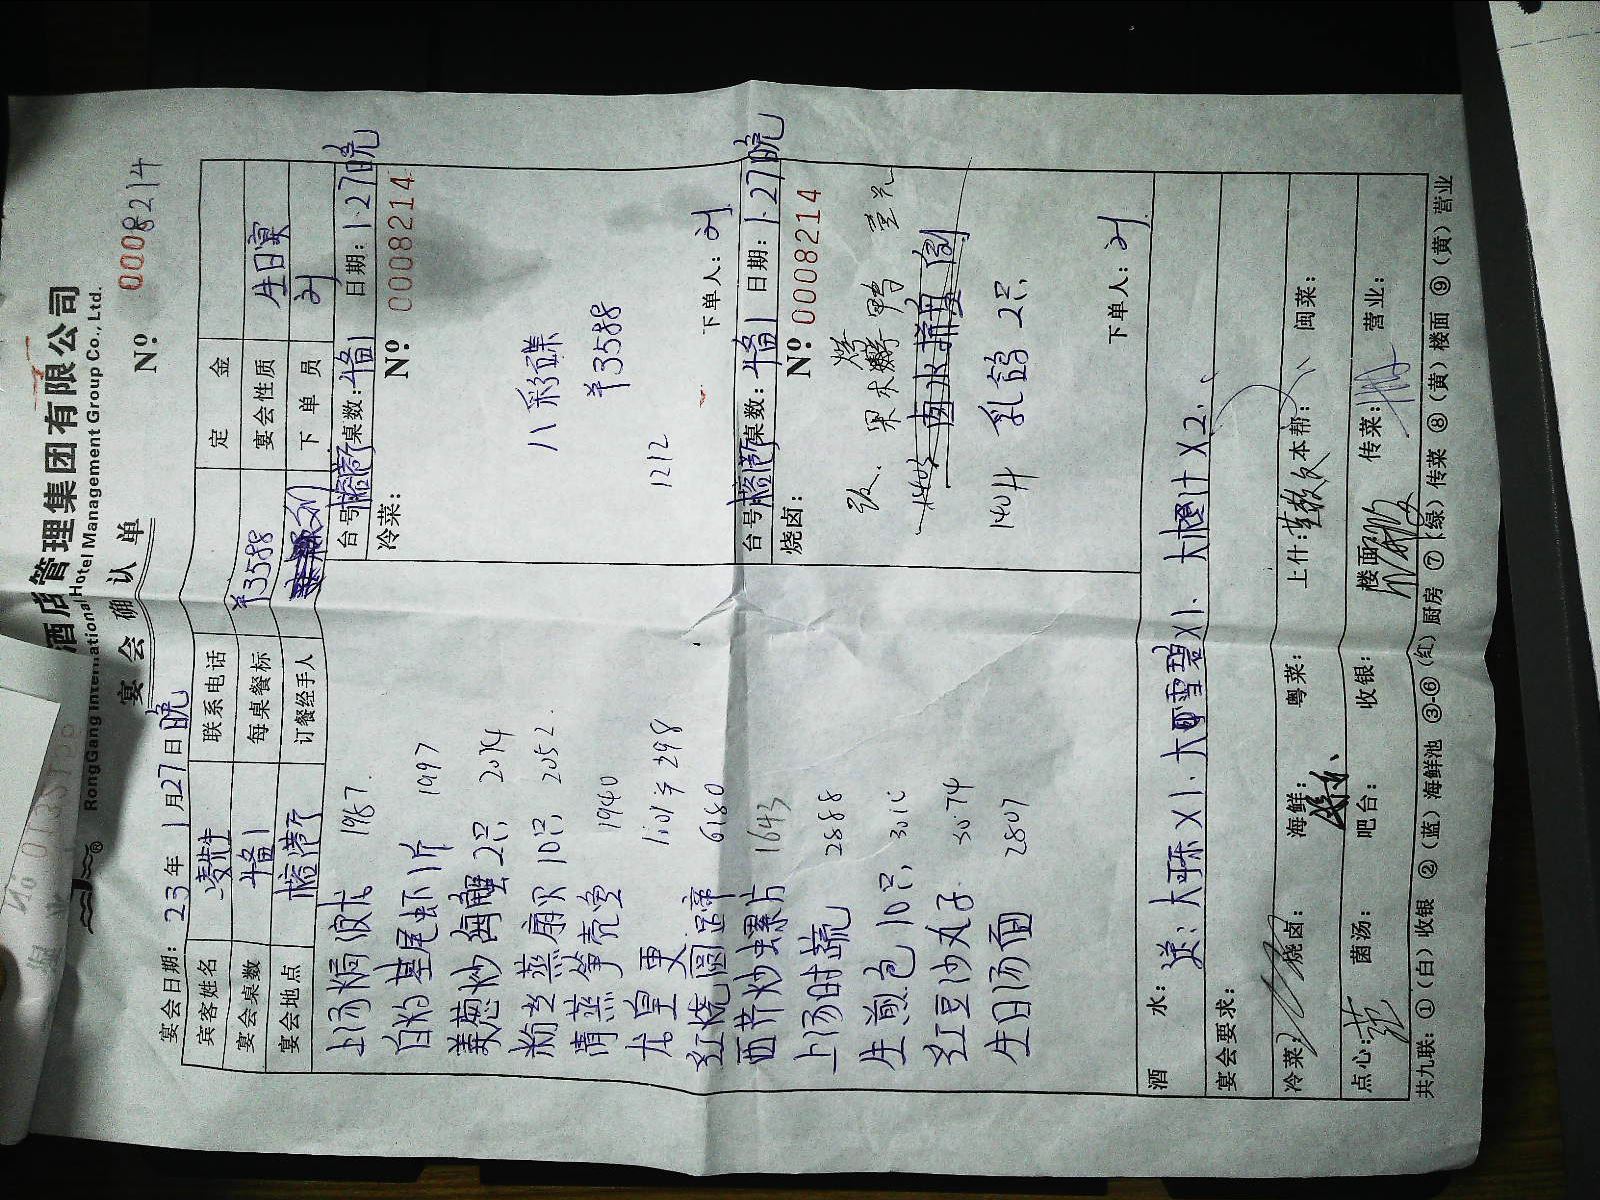 酒店管理集团有限公司
RongGang International Hotel Management Group Co., Ltd.
宴会确认单
Nº 0008214
宴会日期：23年1月27日晚
宾客姓名 凌先生 联系电话 定金
宴会桌数 1备1 每桌餐标 ¥3588 宴会性质 生日宴
宴会地点 榕港厅 订餐经手人 下单员 刘
上汤焗波龙 1987.
白灼基尾虾1斤 1997
姜葱炒海蟹2只 2014
粉丝蒸扇贝10只 2052.
清蒸笋壳鱼 1940
298
红烧圆蹄 6180
西芹炒螺片 1643
上汤时蔬 2888
生煎包10只
红豆沙丸子 3074
生日汤面 2807
台号 榕港厅 桌数：1备1 日期：1.27晚
冷菜： Nº 0008214
八彩碟
¥3588
1212
下单人：刘
台号 榕港厅 桌数：1备1 日期：1.27晚
烧卤： Nº 0008214
果木烤鸭
乳鸽2只
下单人：刘
酒水：送：大可乐X1.大雪碧X1.大橙汁X2.
宴会要求：
冷菜： 烧卤： 海鲜： 粤菜： 上什： 本帮： 闽菜：
点心： 菌汤： 吧台： 收银： 楼面： 传菜： 营业：
共九联：①（白）收银 ②（蓝）海鲜池 ③-⑥（红）厨房 ⑦（绿）传菜 ⑧（黄）楼面 ⑨（黄）营业